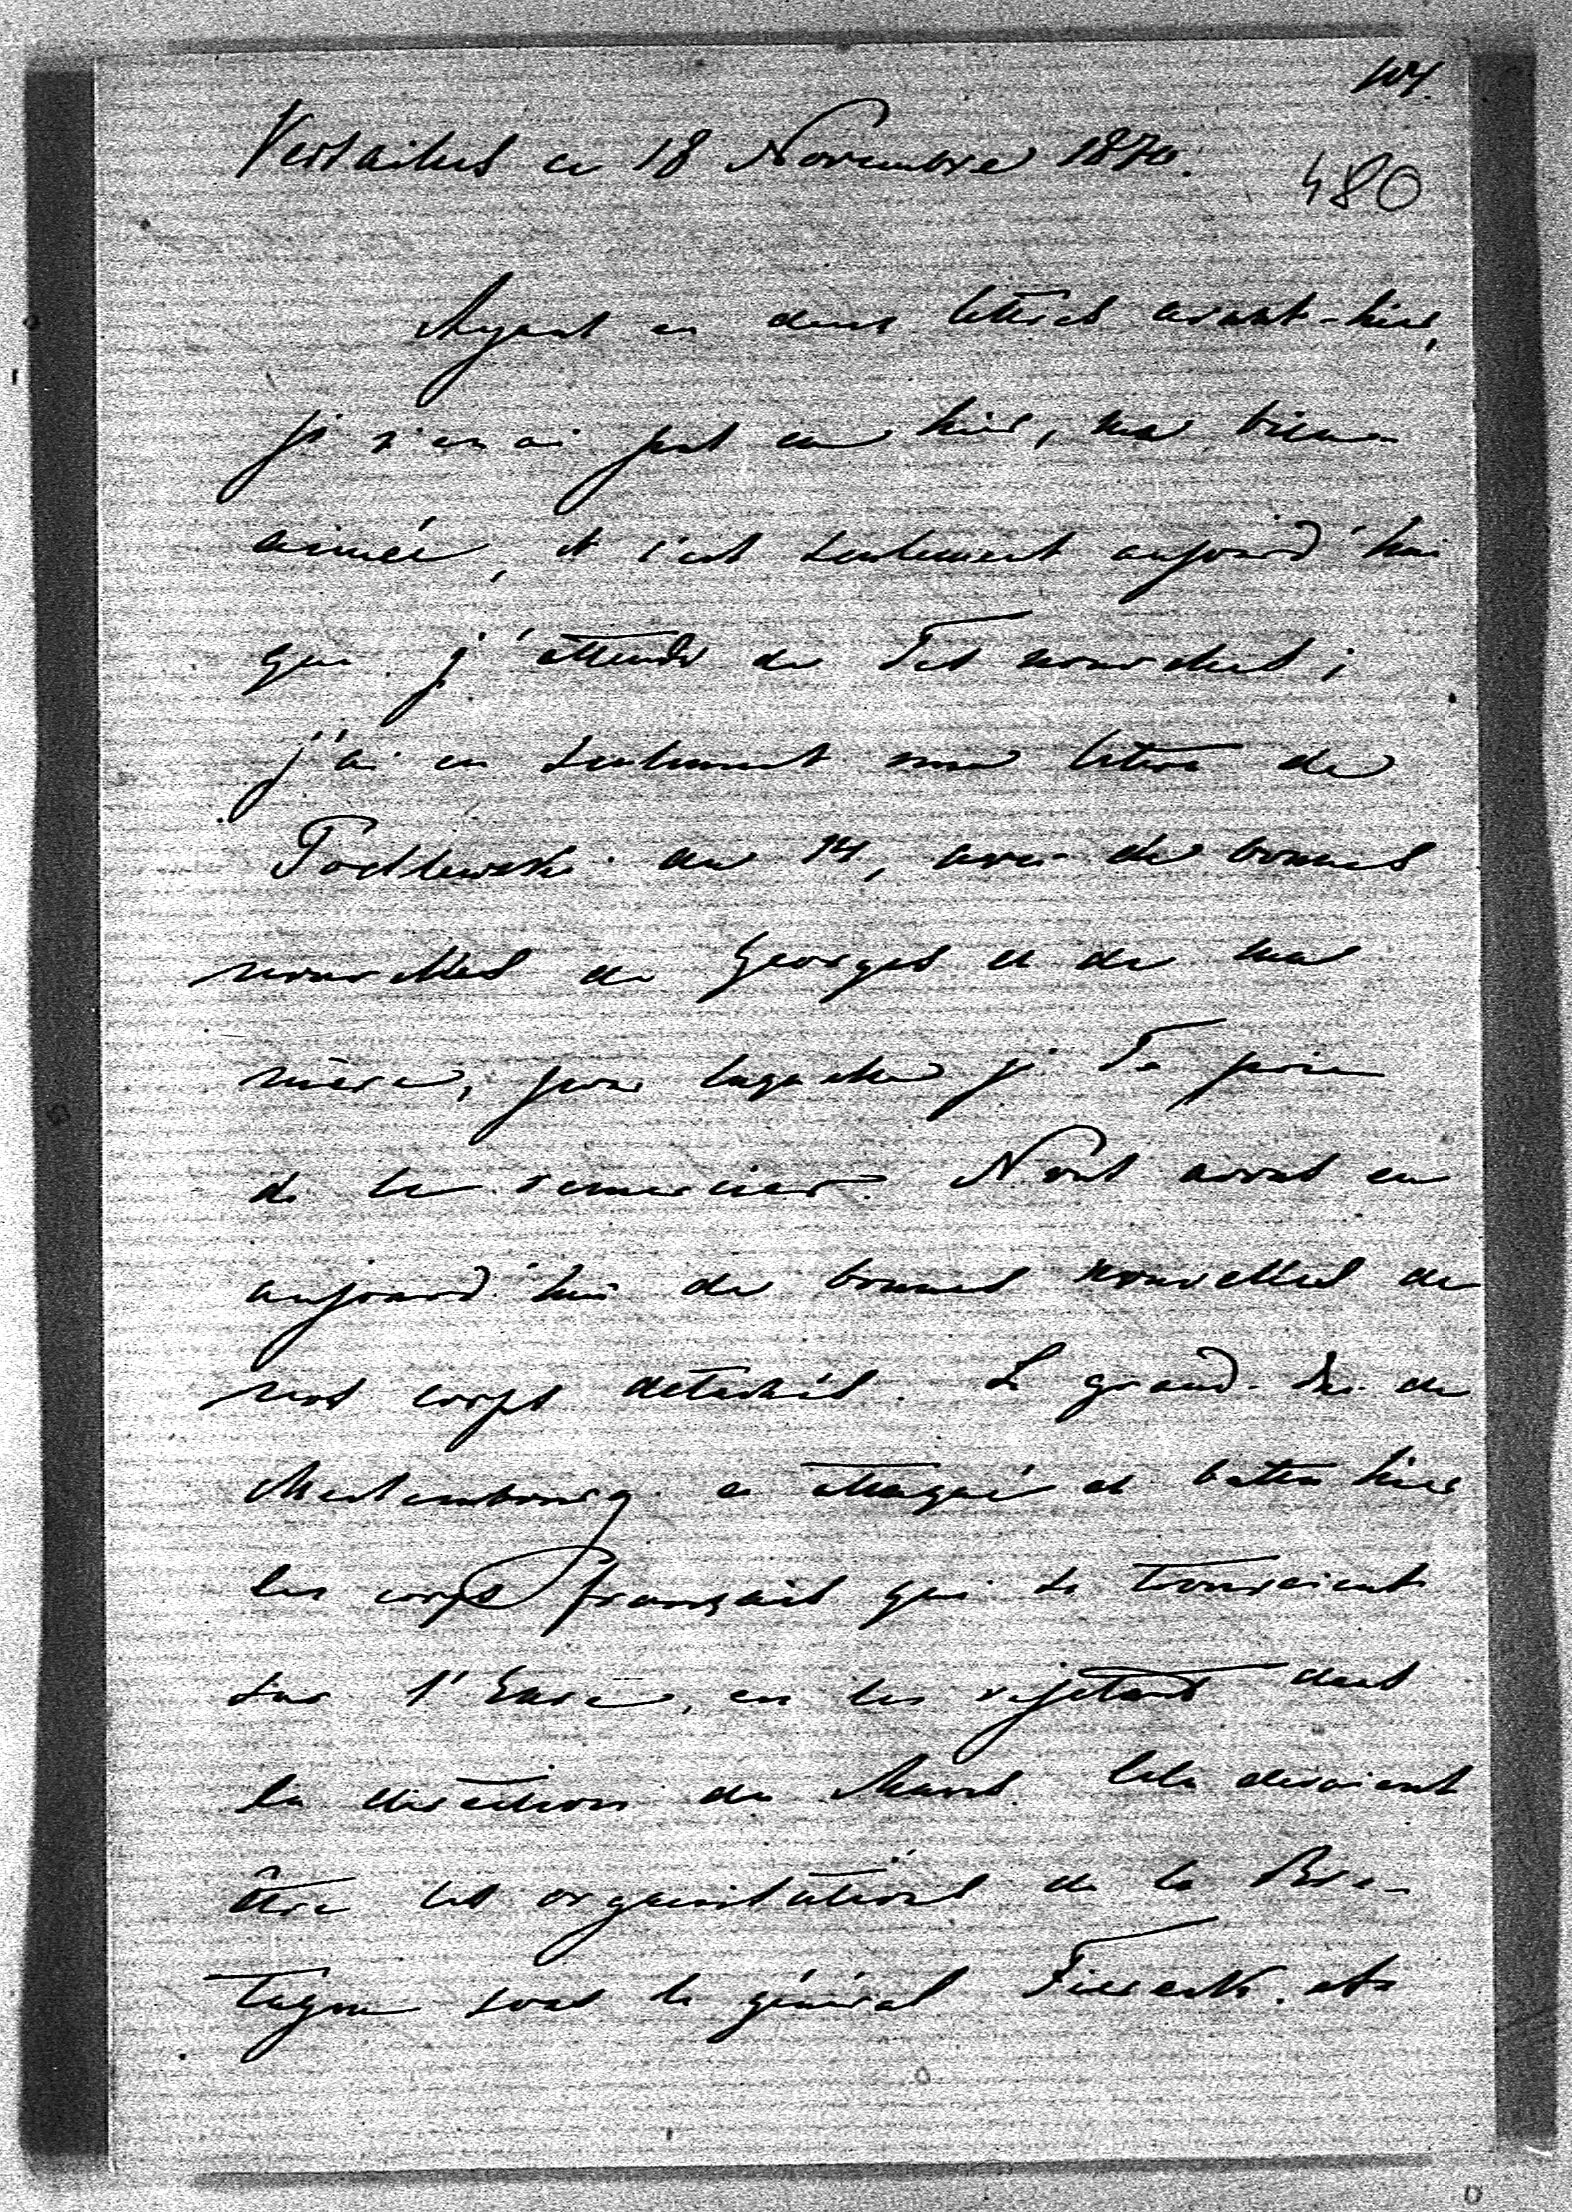 104.
Versailles ce 18 Novembre 1870.
480
Ayant eu deux lettres avant-hier,
je n'en ai pas eu hier, ma bien-
aimée, et c'est seulement aujourd'hui
que j'attends de Tes nouvelles;
j'ai eu seulement une lettre de
du 14, avec de bonnes
nouvelles de Georges et de ma
mère, pour laquelle je Te prie
de le remercier. Nous avons eu
aujourd'hui de bonnes nouvelles de
nos corps détachés. Le grand-duc de
Mecklembourg a attaqué et battu hier
les corps français qui se trouvaient
sur l'Eure, en les rejetant dans
la direction du Mans. Cela devaient
être les organisations de la Bre-
tagne sous le général Fiereck. et